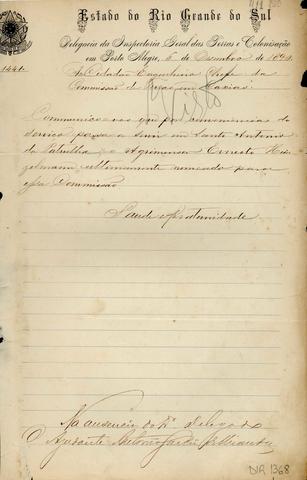 Estado do Rio Grande do Sul
Delegacia da Inspectoria Geral das Terras e Colonisação
em Porto Alegre, 5 de Dezembro de 189
1441.
Ao Cidadão Engenheiro Chefe da
Commissão de Terras em Caxias
Visto
Communico-vos que por conveniencia do
serviço passa a servir em Santo Antonio
da Patrulha o Agrimensor Ernesto
ultimamente nomeado para
essa Commissão
Saude e Fraternidade
Na ausencia do Delegado
O Ajudante Antonio
DIR 1368